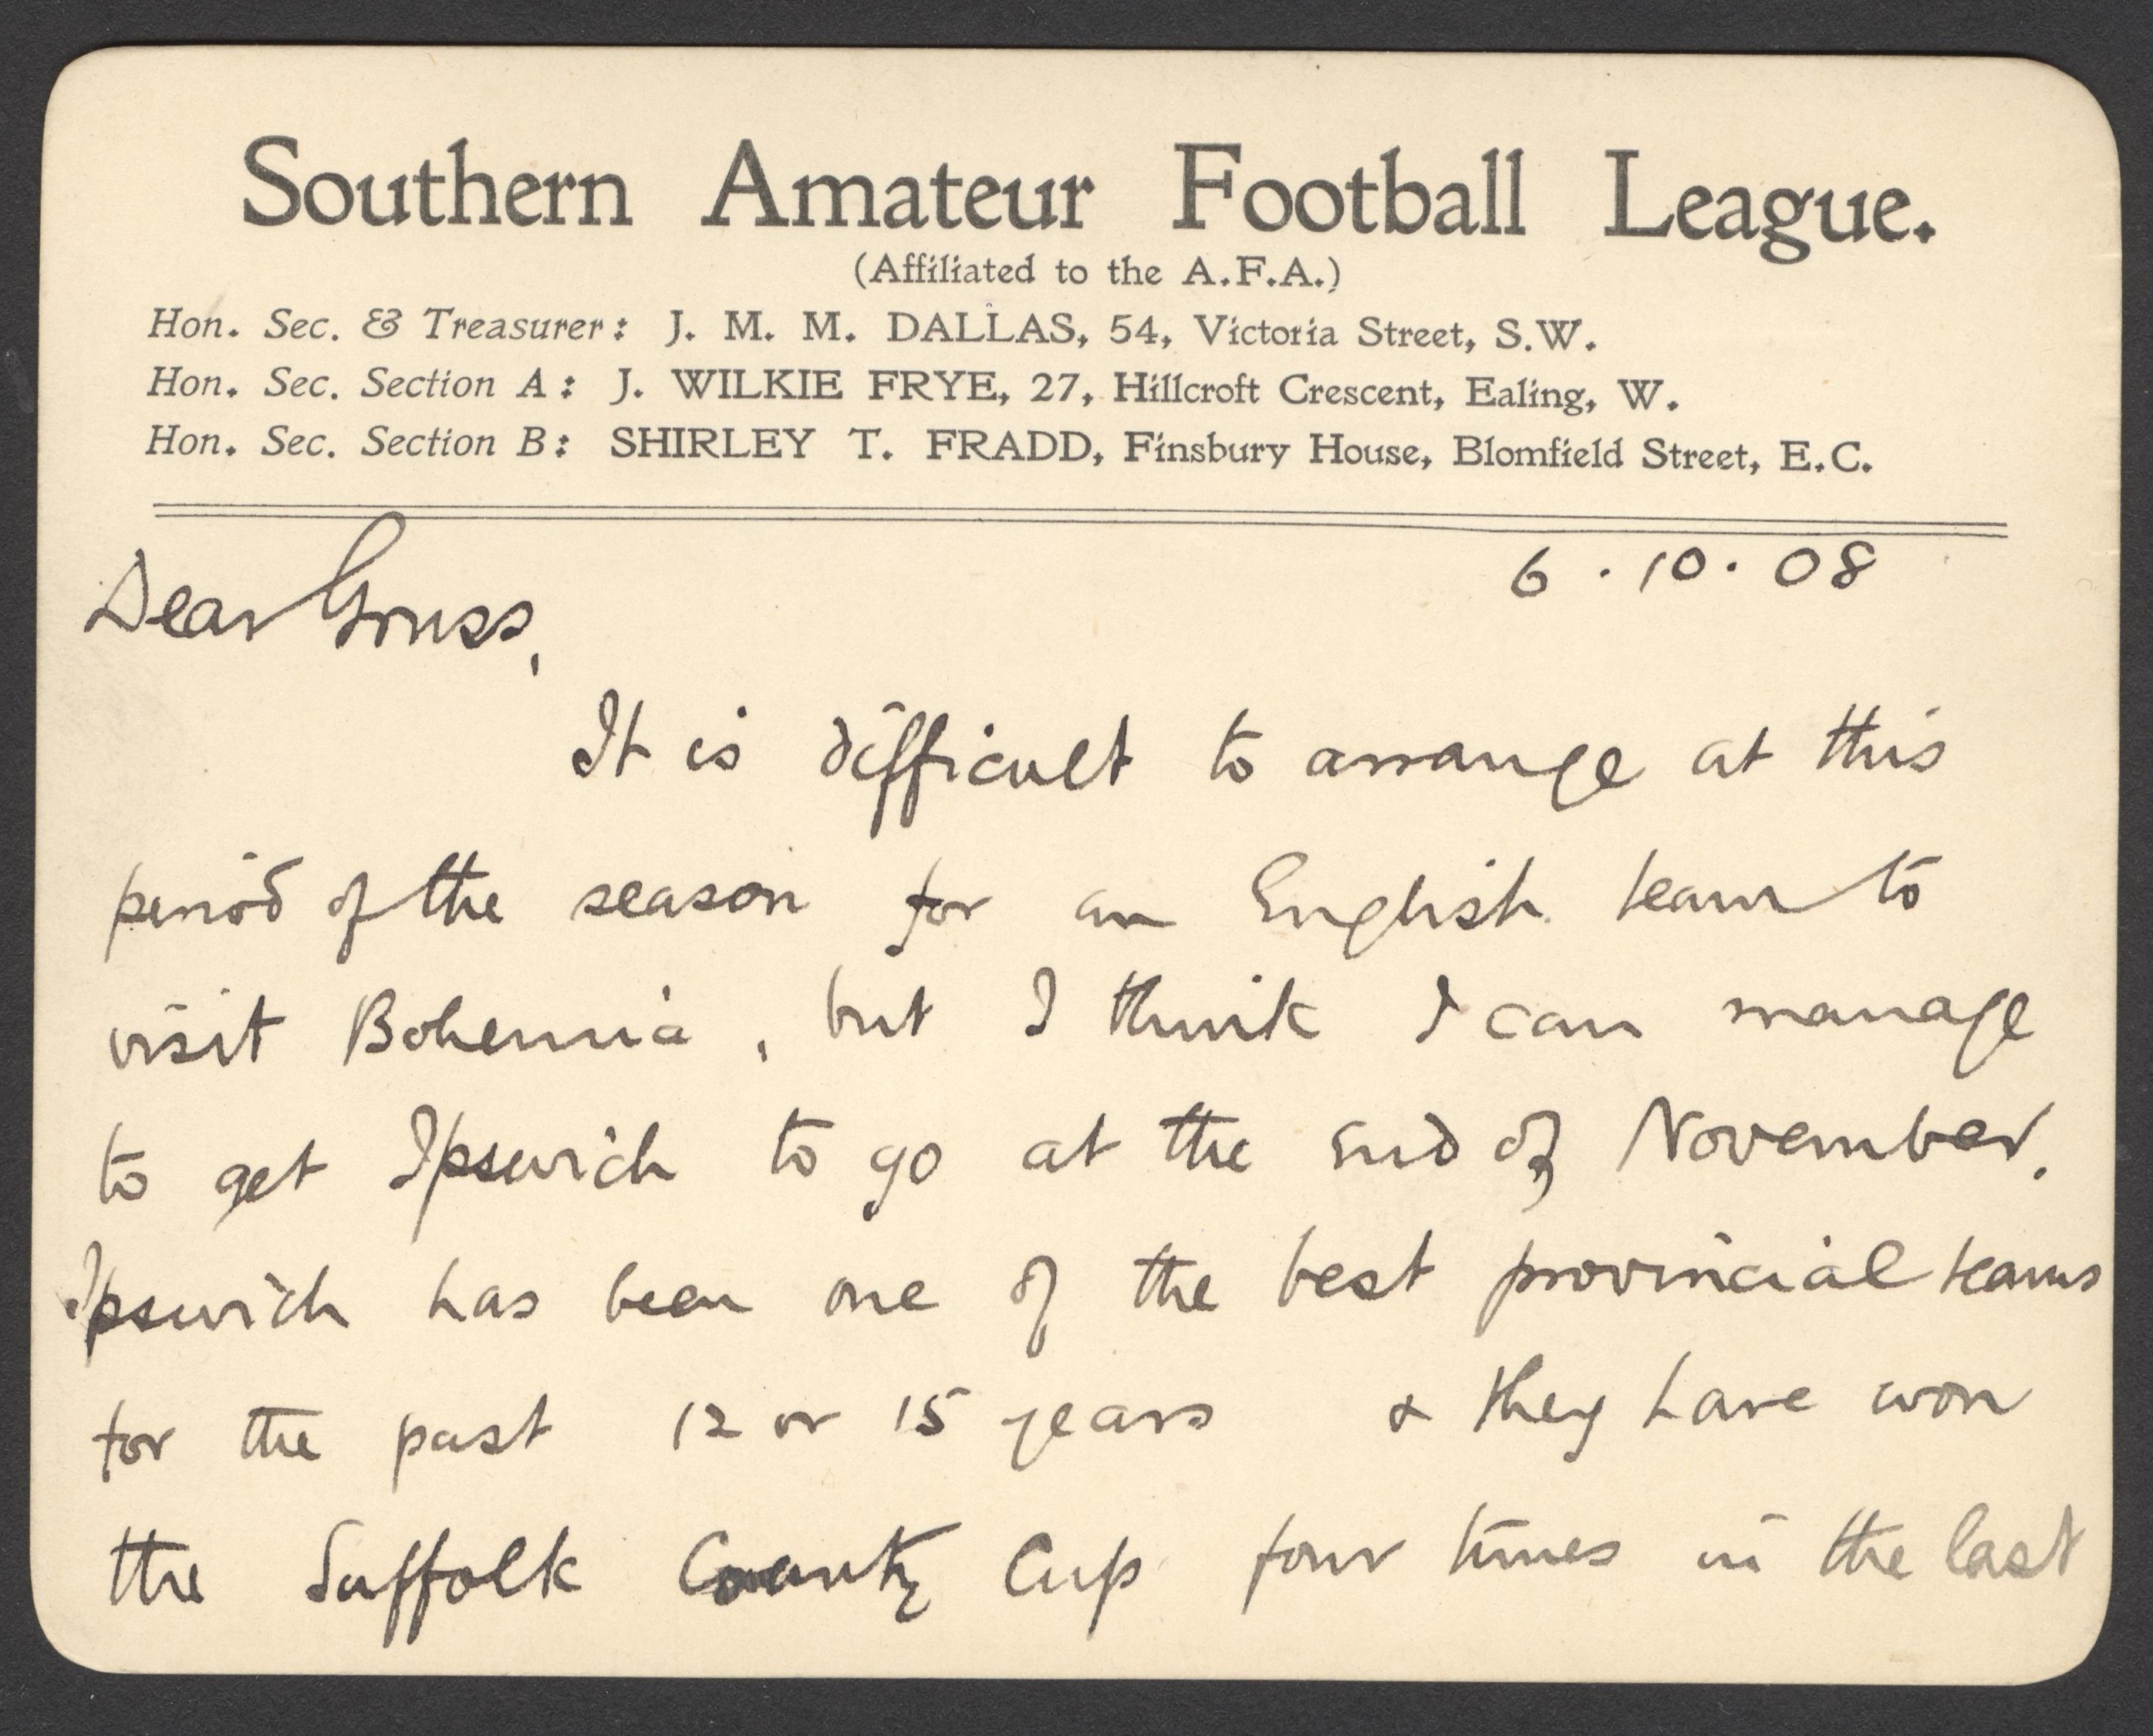 Southern Amateur Football League.
(Affiliated to the A.F.A.)
Hon. Sec. & Treasurer: J. M. M. DALLAS, 54, Victoria Street, S.W.
Hon. Sec. Section A: J. WILKIE FRYE, 27, Hillcroft Crescent, Ealing, W.
Hon. Sec. Section B: SHIRLEY T. FRADD, Finsbury House, Blomfield Street, E.C.
6.10.08
Dear Gruss,
It is difficult to arrange at this
period of the season for an English team to
visit Bohemia, but I think I can manage
to get Ipswich to go at the end of November.
Ipswich has been one of the best provincial teams
for the past 12 or 15 years & they have won
the Suffolk County Cup four times in the last